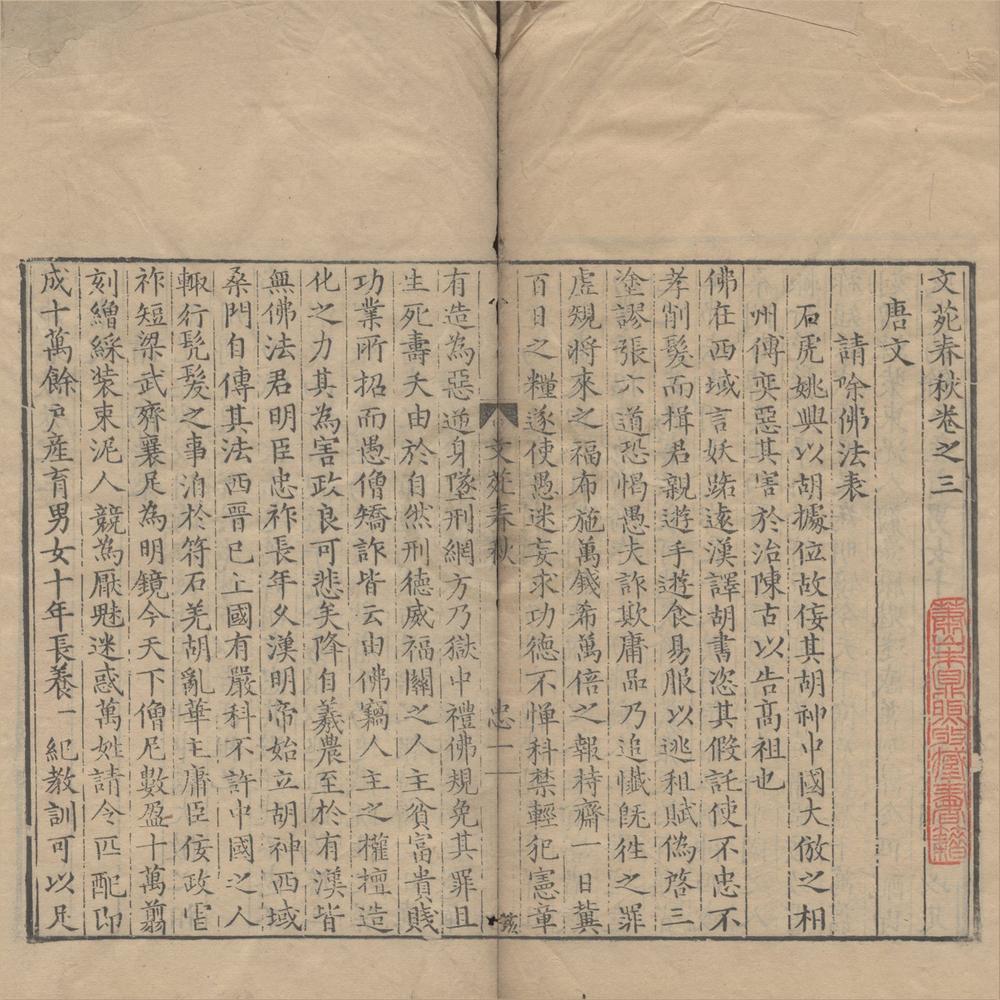 文苑春秋卷之三
唐文
請除佛法表
石虎姚興以胡據位故侫其胡神中國大倣之相
州傅奕惡其害於治陳古以告高祖也
佛在西域言妖路遠漢譯胡書恣其假託使不忠不
孝削髮而揖君親遊手遊食易服以逃租賦偽啓三
塗謬張六道恐愒愚夫詐欺庸品乃追懴旣徃之罪
虛規將來之福布施萬錢希萬倍之報持齋一日冀
百日之糧遂使愚迷妄求功德不憚科禁輕犯憲章
文苑春秋
忠一
一
有造為惡逆身墜刑網方乃獄中禮佛規免其罪且
生死壽夭由於自然刑德威福關之人主貧富貴賤
功業所招而愚僧矯詐皆云由佛竊人主之權擅造
化之力其為害政良可悲矣降自羲農至於有漢皆
無佛法君明臣忠祚長年久漢明帝始立胡神西域
桑門自傳其法西晉已上國有嚴科不許中國之人
輙行髡髮之事洎於符石羌胡亂華主庸臣侫政虐
祚短梁武齊襄足為明鏡今天下僧尼數盈十萬翦
刻繒綵裝束泥人競為厭魅迷惑萬姓請令匹配即
成十萬餘户產育男女十年長養一紀教訓可以足